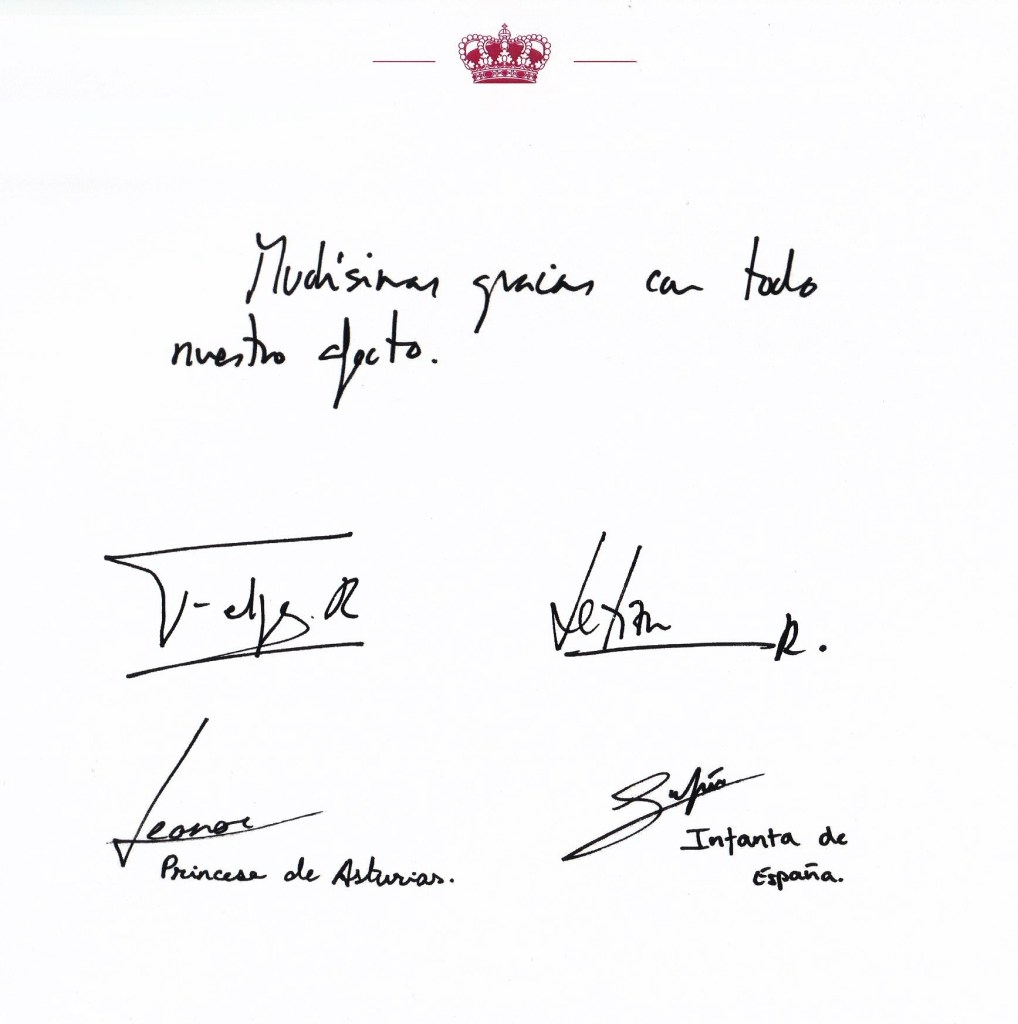 Muchísimas gracias con todo
nuestro afecto.
Felipe R
Letizia R.
Leonor
Princesa de Asturias.
Sofía
Infanta de
España.